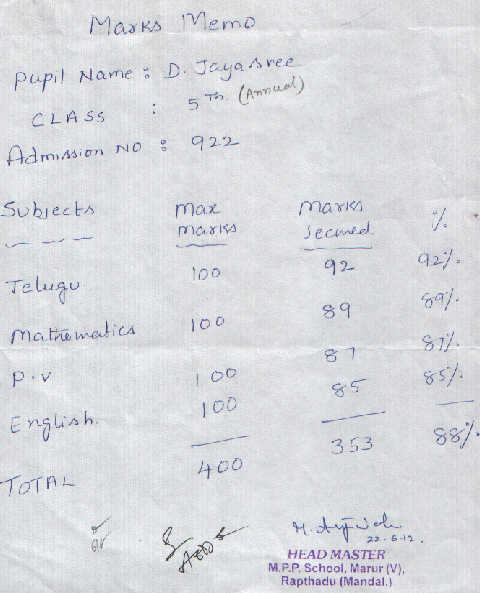 Marks Memo
Pupil Name : D. Jayasree
CLASS : 5Th (Annual)
Admission NO : 922
Subjects Max marks Marks Secured %
Telugu 100 92 92%.
Mathematics 100 89 89%.
P.V 100 87 87%.
English. 100 85 85%.
TOTAL 400 353 88%.
22-6-12.
HEAD MASTER
M.P.P. School, Marur (V),
Rapthadu (Mandal.)